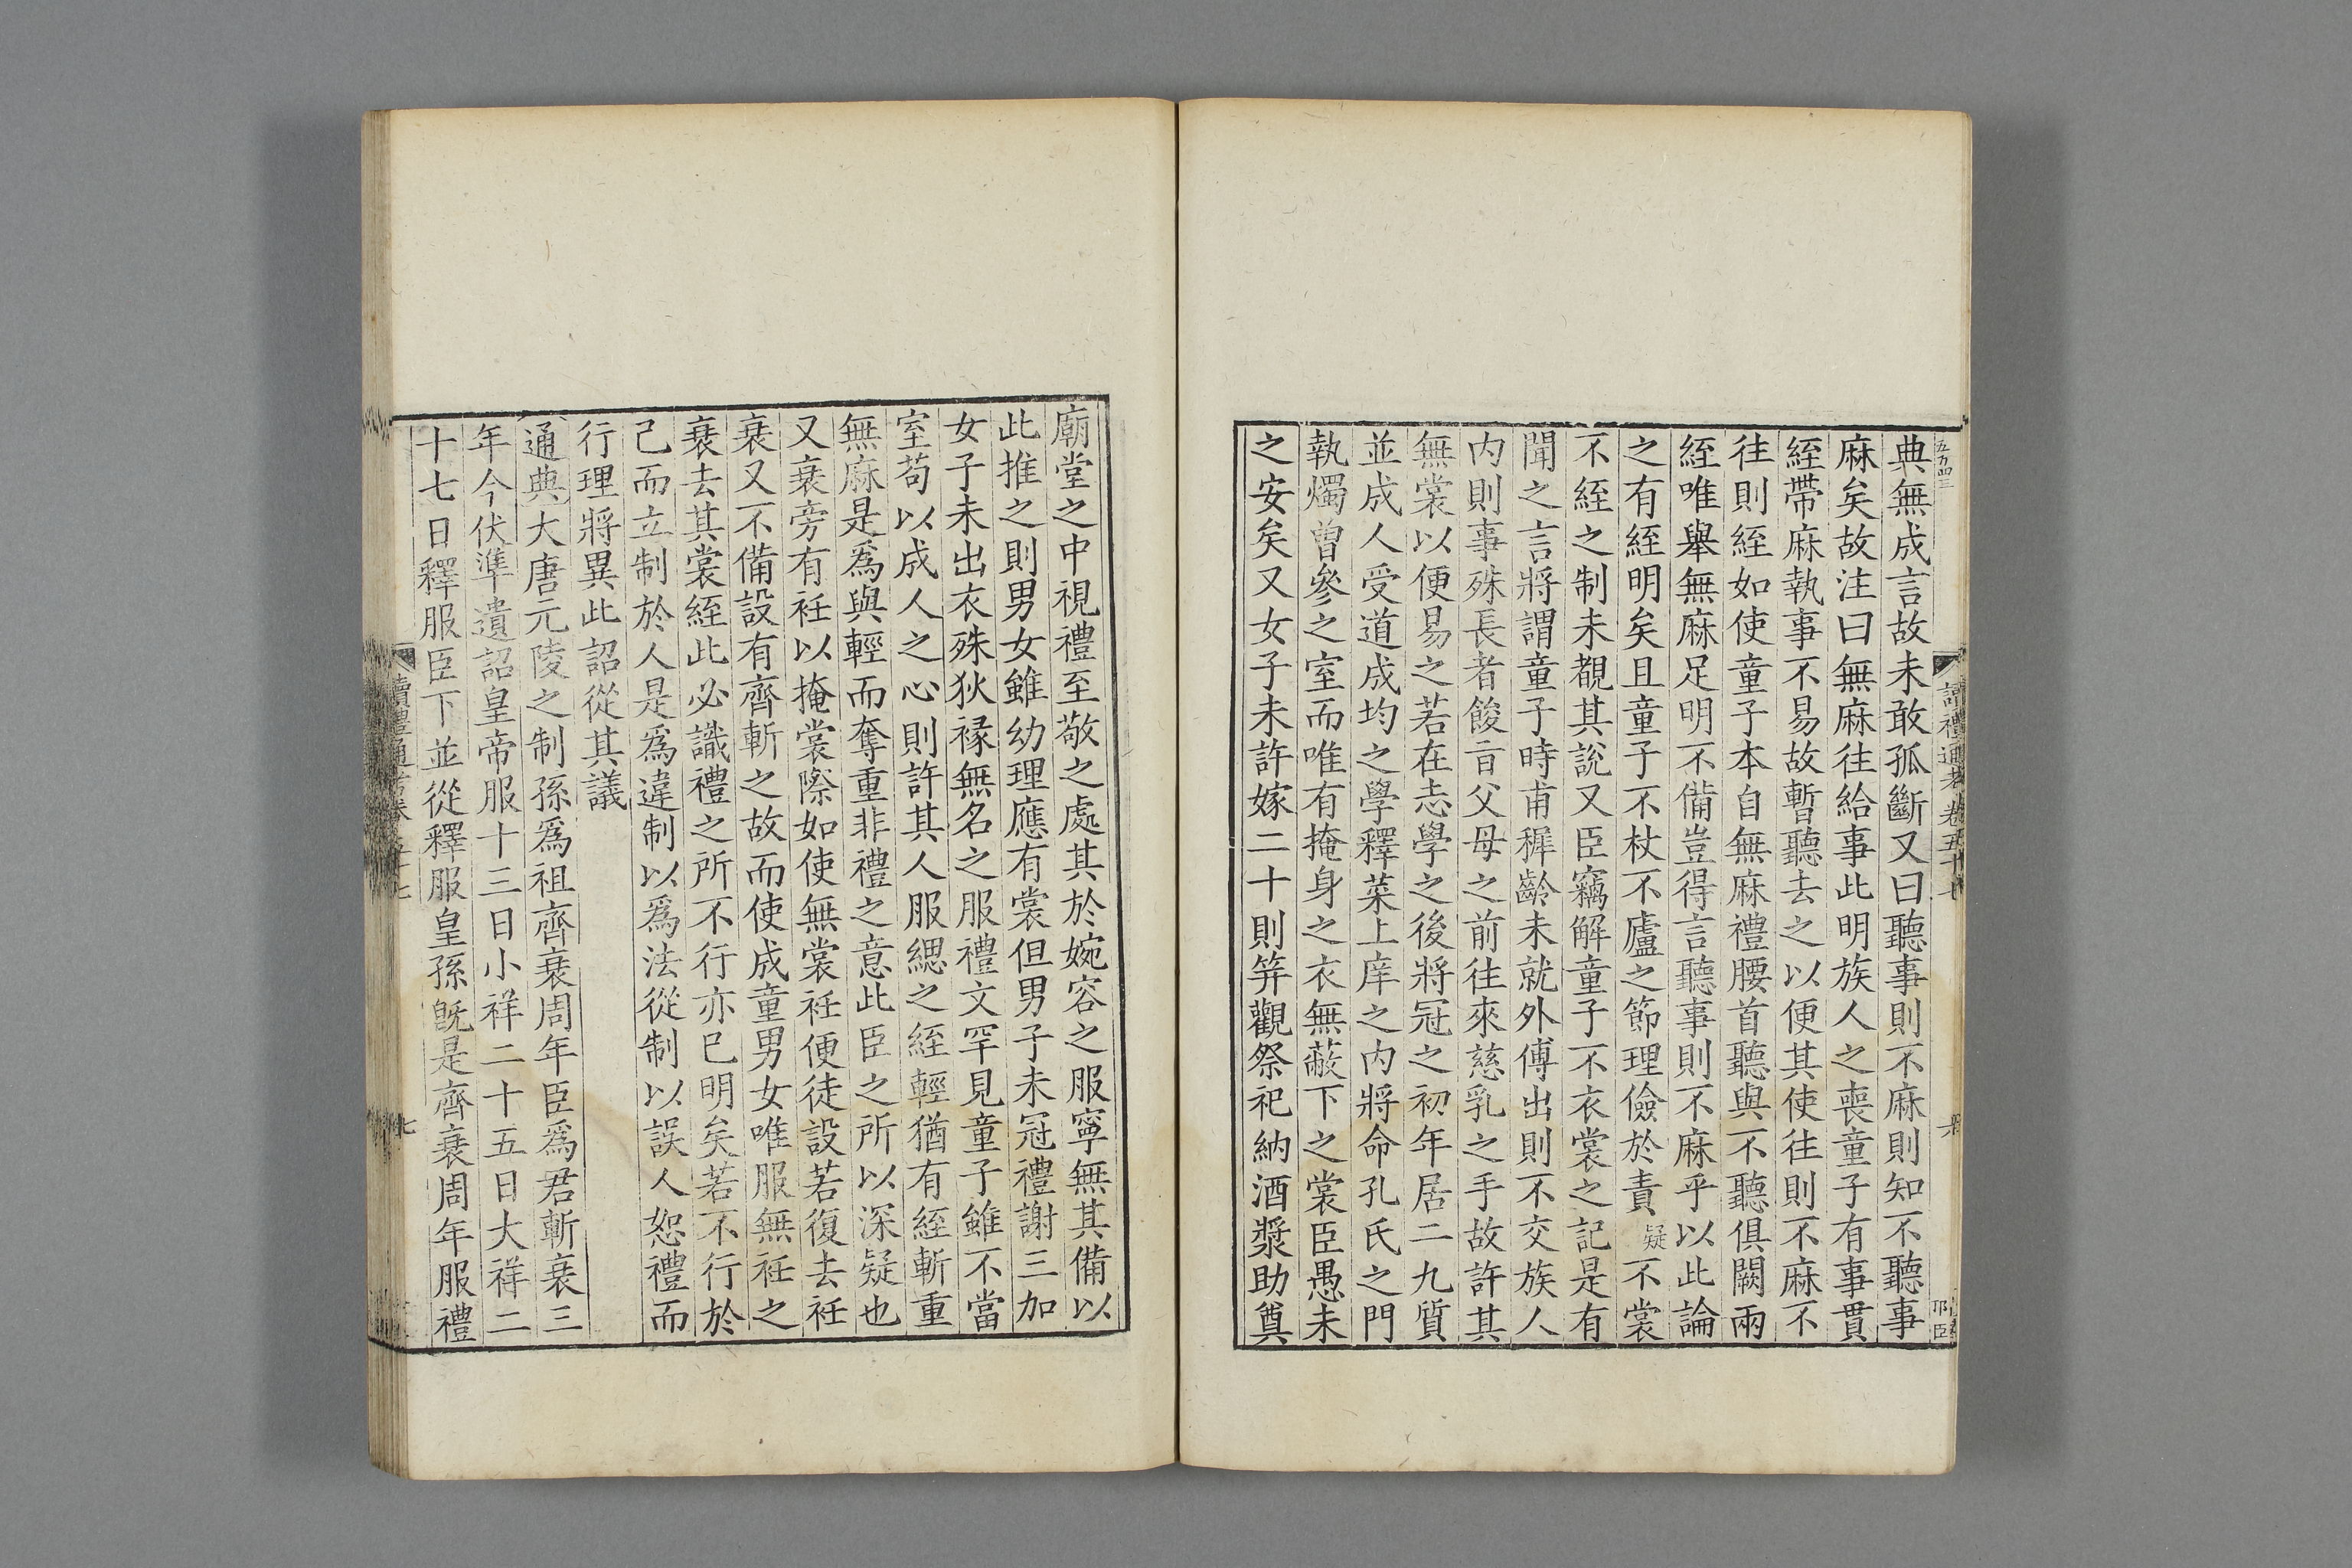 典無成言故未敢孤斷又曰聽事則不麻則知不聽事
麻矣故注曰無麻往給事此明族人之喪童子有事貫
絰帶麻執事不易故暫聽去之以便其使往則不麻不
往則絰如使童子本自無麻禮腰首聽與不聽俱闕兩
絰唯舉無麻足明不備豈得言聽事則不麻乎以此論
之有絰明矣且童子不杖不廬之節理儉於責疑不裳
不絰之制未覩其說又臣竊解童子不衣裳之記是有
聞之言將謂童子時甫稺齡未就外傅出則不交族人
內則事殊長者餕旨父母之前往來慈乳之手故許其
無裳以便易之若在志學之後將冠之初年居二九質
並成人受道成均之學釋菜上庠之內將命孔氏之門
執燭曾參之室而唯有掩身之衣無蔽下之裳臣愚未
之安矣又女子未許嫁二十則笄觀祭祀納酒漿助奠
廟堂之中視禮至敬之處其於婉容之服寧無其備以
此推之則男女雖幼理應有裳但男子未冠禮謝三加
女子未出衣殊狄褖無名之服禮文罕見童子雖不當
室苟以成人之心則許其人服緦之絰輕猶有絰斬重
無麻是爲與輕而奪重非禮之意此臣之所以深疑也
又衰旁有衽以掩裳際如使無裳衽便徒設若復去衽
衰又不備設有齊斬之故而使成童男女唯服無衽之
衰去其裳絰此必識禮之所不行亦已明矣若不行於
己而立制於人是爲違制以爲法從制以誤人恕禮而
行理將異此詔從其議
通典大唐元陵之制孫爲祖齊衰周年臣爲君斬衰三
年今伏準遺詔皇帝服十三日小祥二十五日大祥二
十七日釋服臣下並從釋服皇孫旣是齊衰周年服禮
讀禮通考卷五十七
七